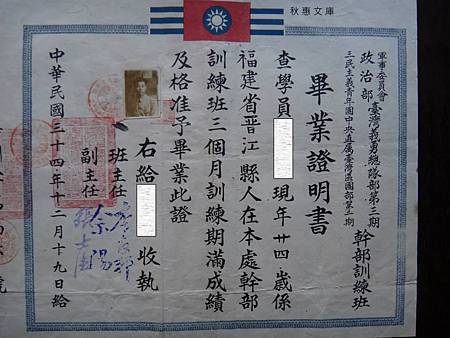 秋惠文庫
軍事委員會政治部臺灣義勇總隊部第三期
三民主義青年團中央直屬臺灣區團部第二期
幹部訓練班
畢業證明書
查學員 現年廿四歲係
福建省晋江縣人在本處幹部
訓練班三個月訓練期滿成績
及格准予畢業此證
右給 收執
班主任
副主任
中華民國三十四年十二月十九日給
號